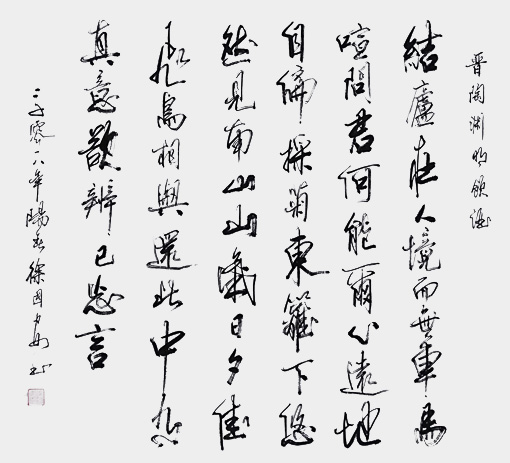 晉陶淵明飲酒
結廬在人境而無車馬
喧問君何能爾心遠地
自偏採菊東籬下悠
然見南山山氣日夕佳
飛鳥相與還此中有
真意欲辨已忘言
二千零八年陽春徐國書